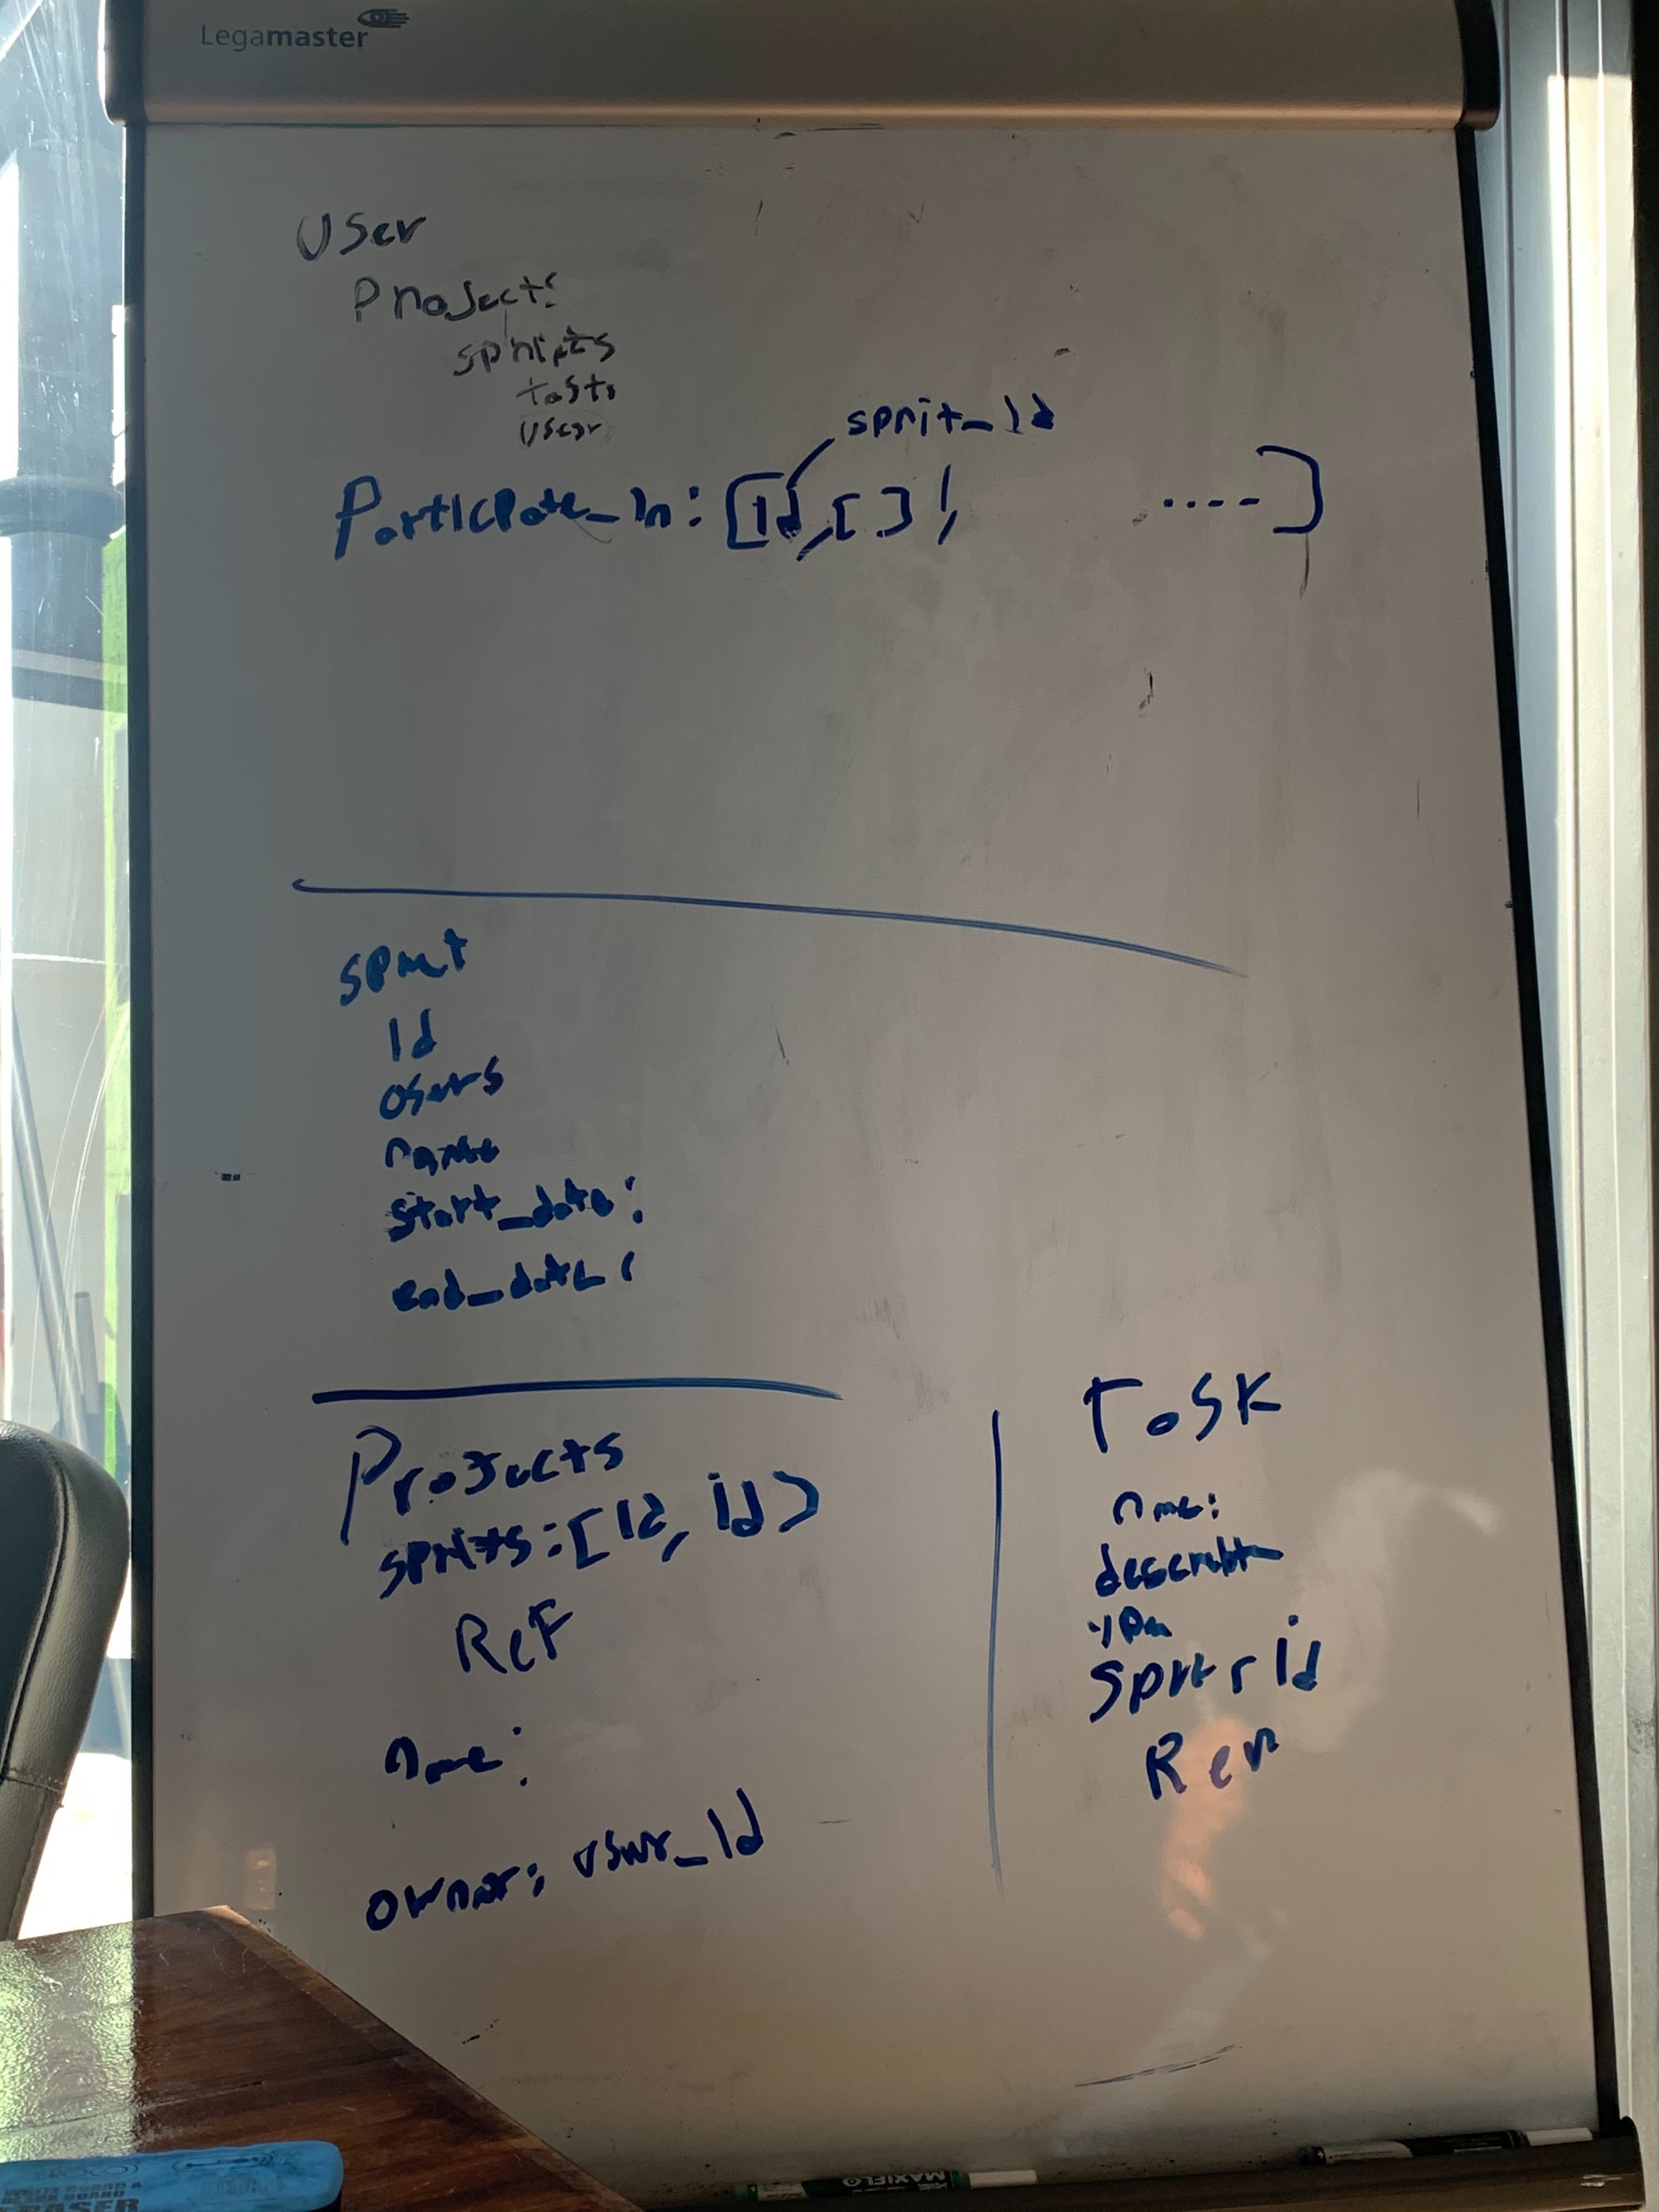 Legamaster
User
Projects
sprints
tasks
user
sprit_id
Participate_in: [id,[ ], ....]
sprint
id
users
name
start_date:
end_date:
Projects
sprits:[id, id]
Ref
name:
owner: user_id
Task
nme:
id
MAXIFLO
WHITE BOARD &
ERASER